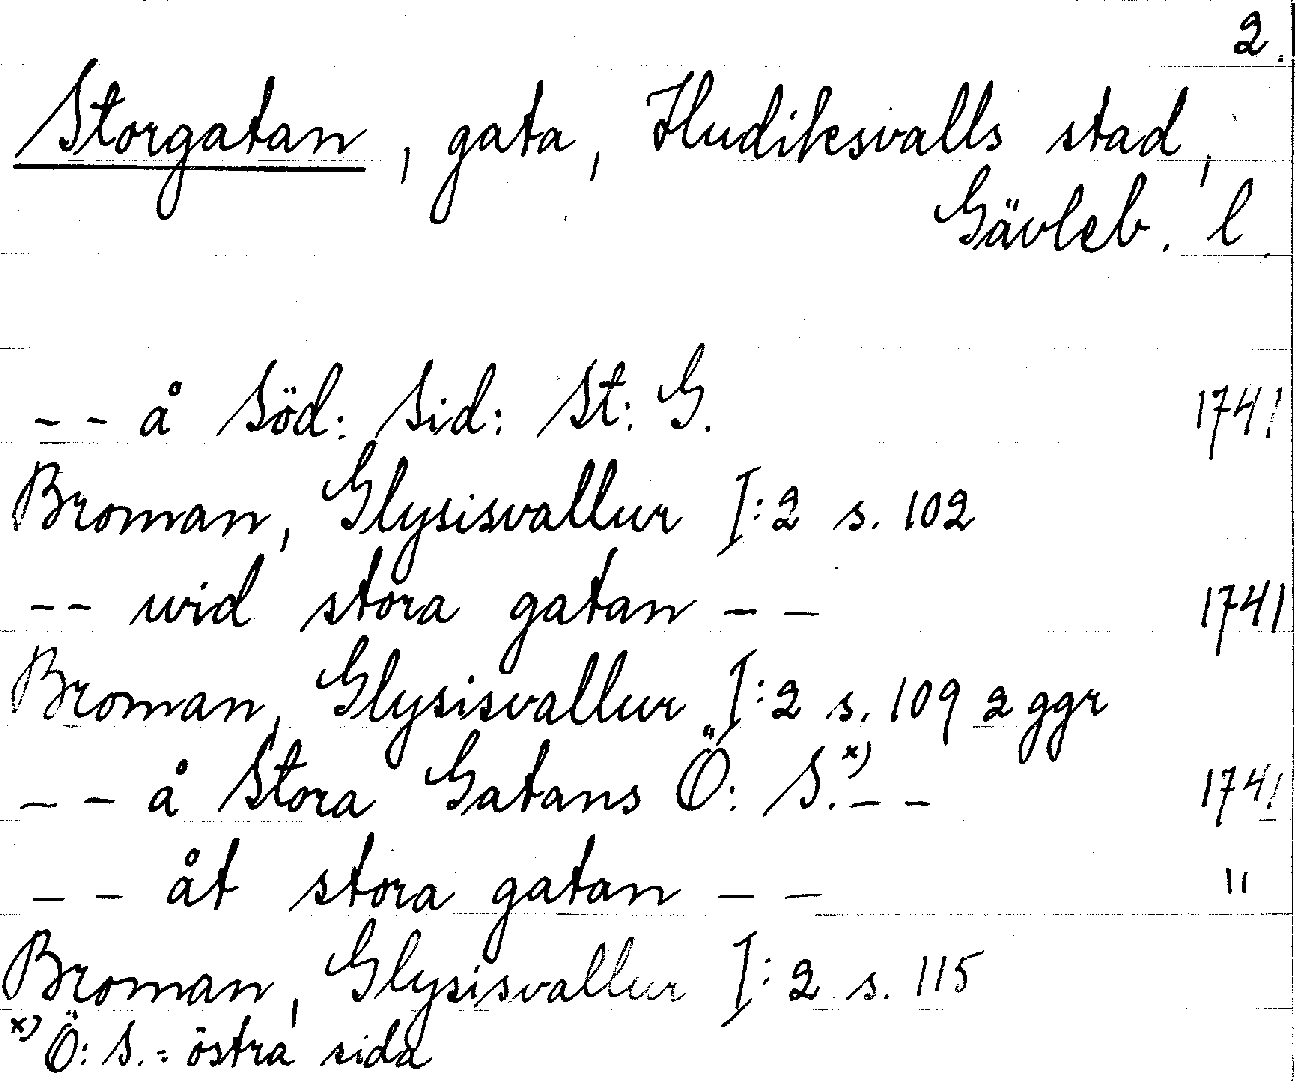 2.
Storgatan, gata, Hudiksvalls stad,
Gävleb. l.
-- å Söd: Sid: St: G. 1741
Broman, Glysisvallur I:2 s. 102
-- wid stora gatan -- 1741
Broman, Glysisvallur I:2 s. 109 2 ggr
-- å Stora Gatans Ö: S.x) -- 1741
-- åt stora gatan -- "
Broman, Glysisvallur I:2 s. 115
x) Ö: S. = östra sida